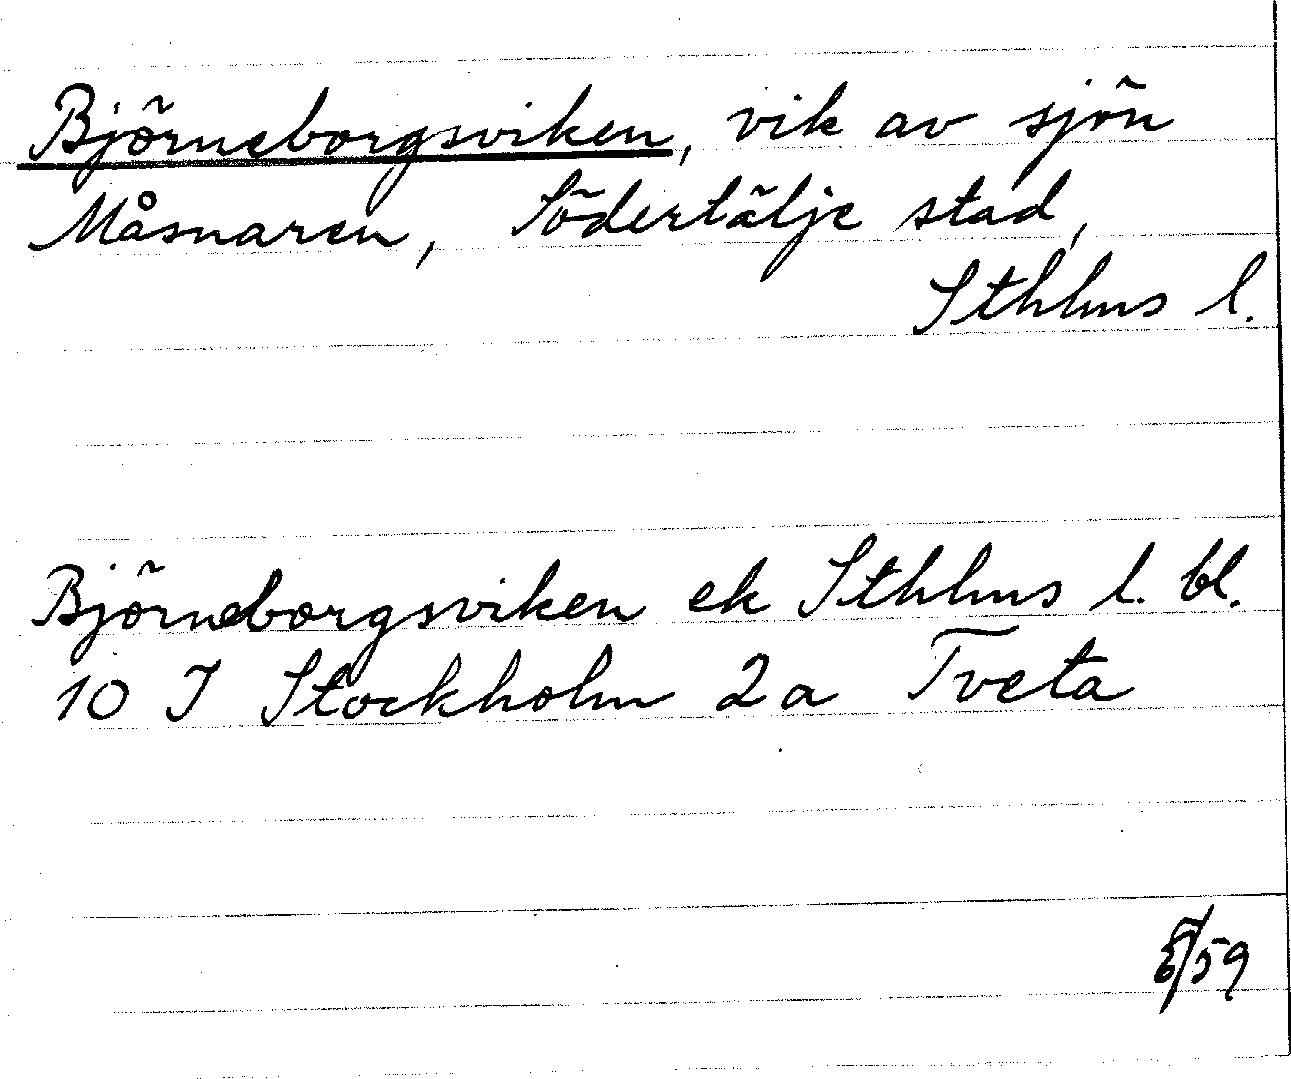 Björneborgsviken, vik av sjön
Måsnaren, Södertälje stad,
Sthlms l.
Björneborgsviken ek Sthlms l. bl.
10 I Stockholm 2a Tveta
/59